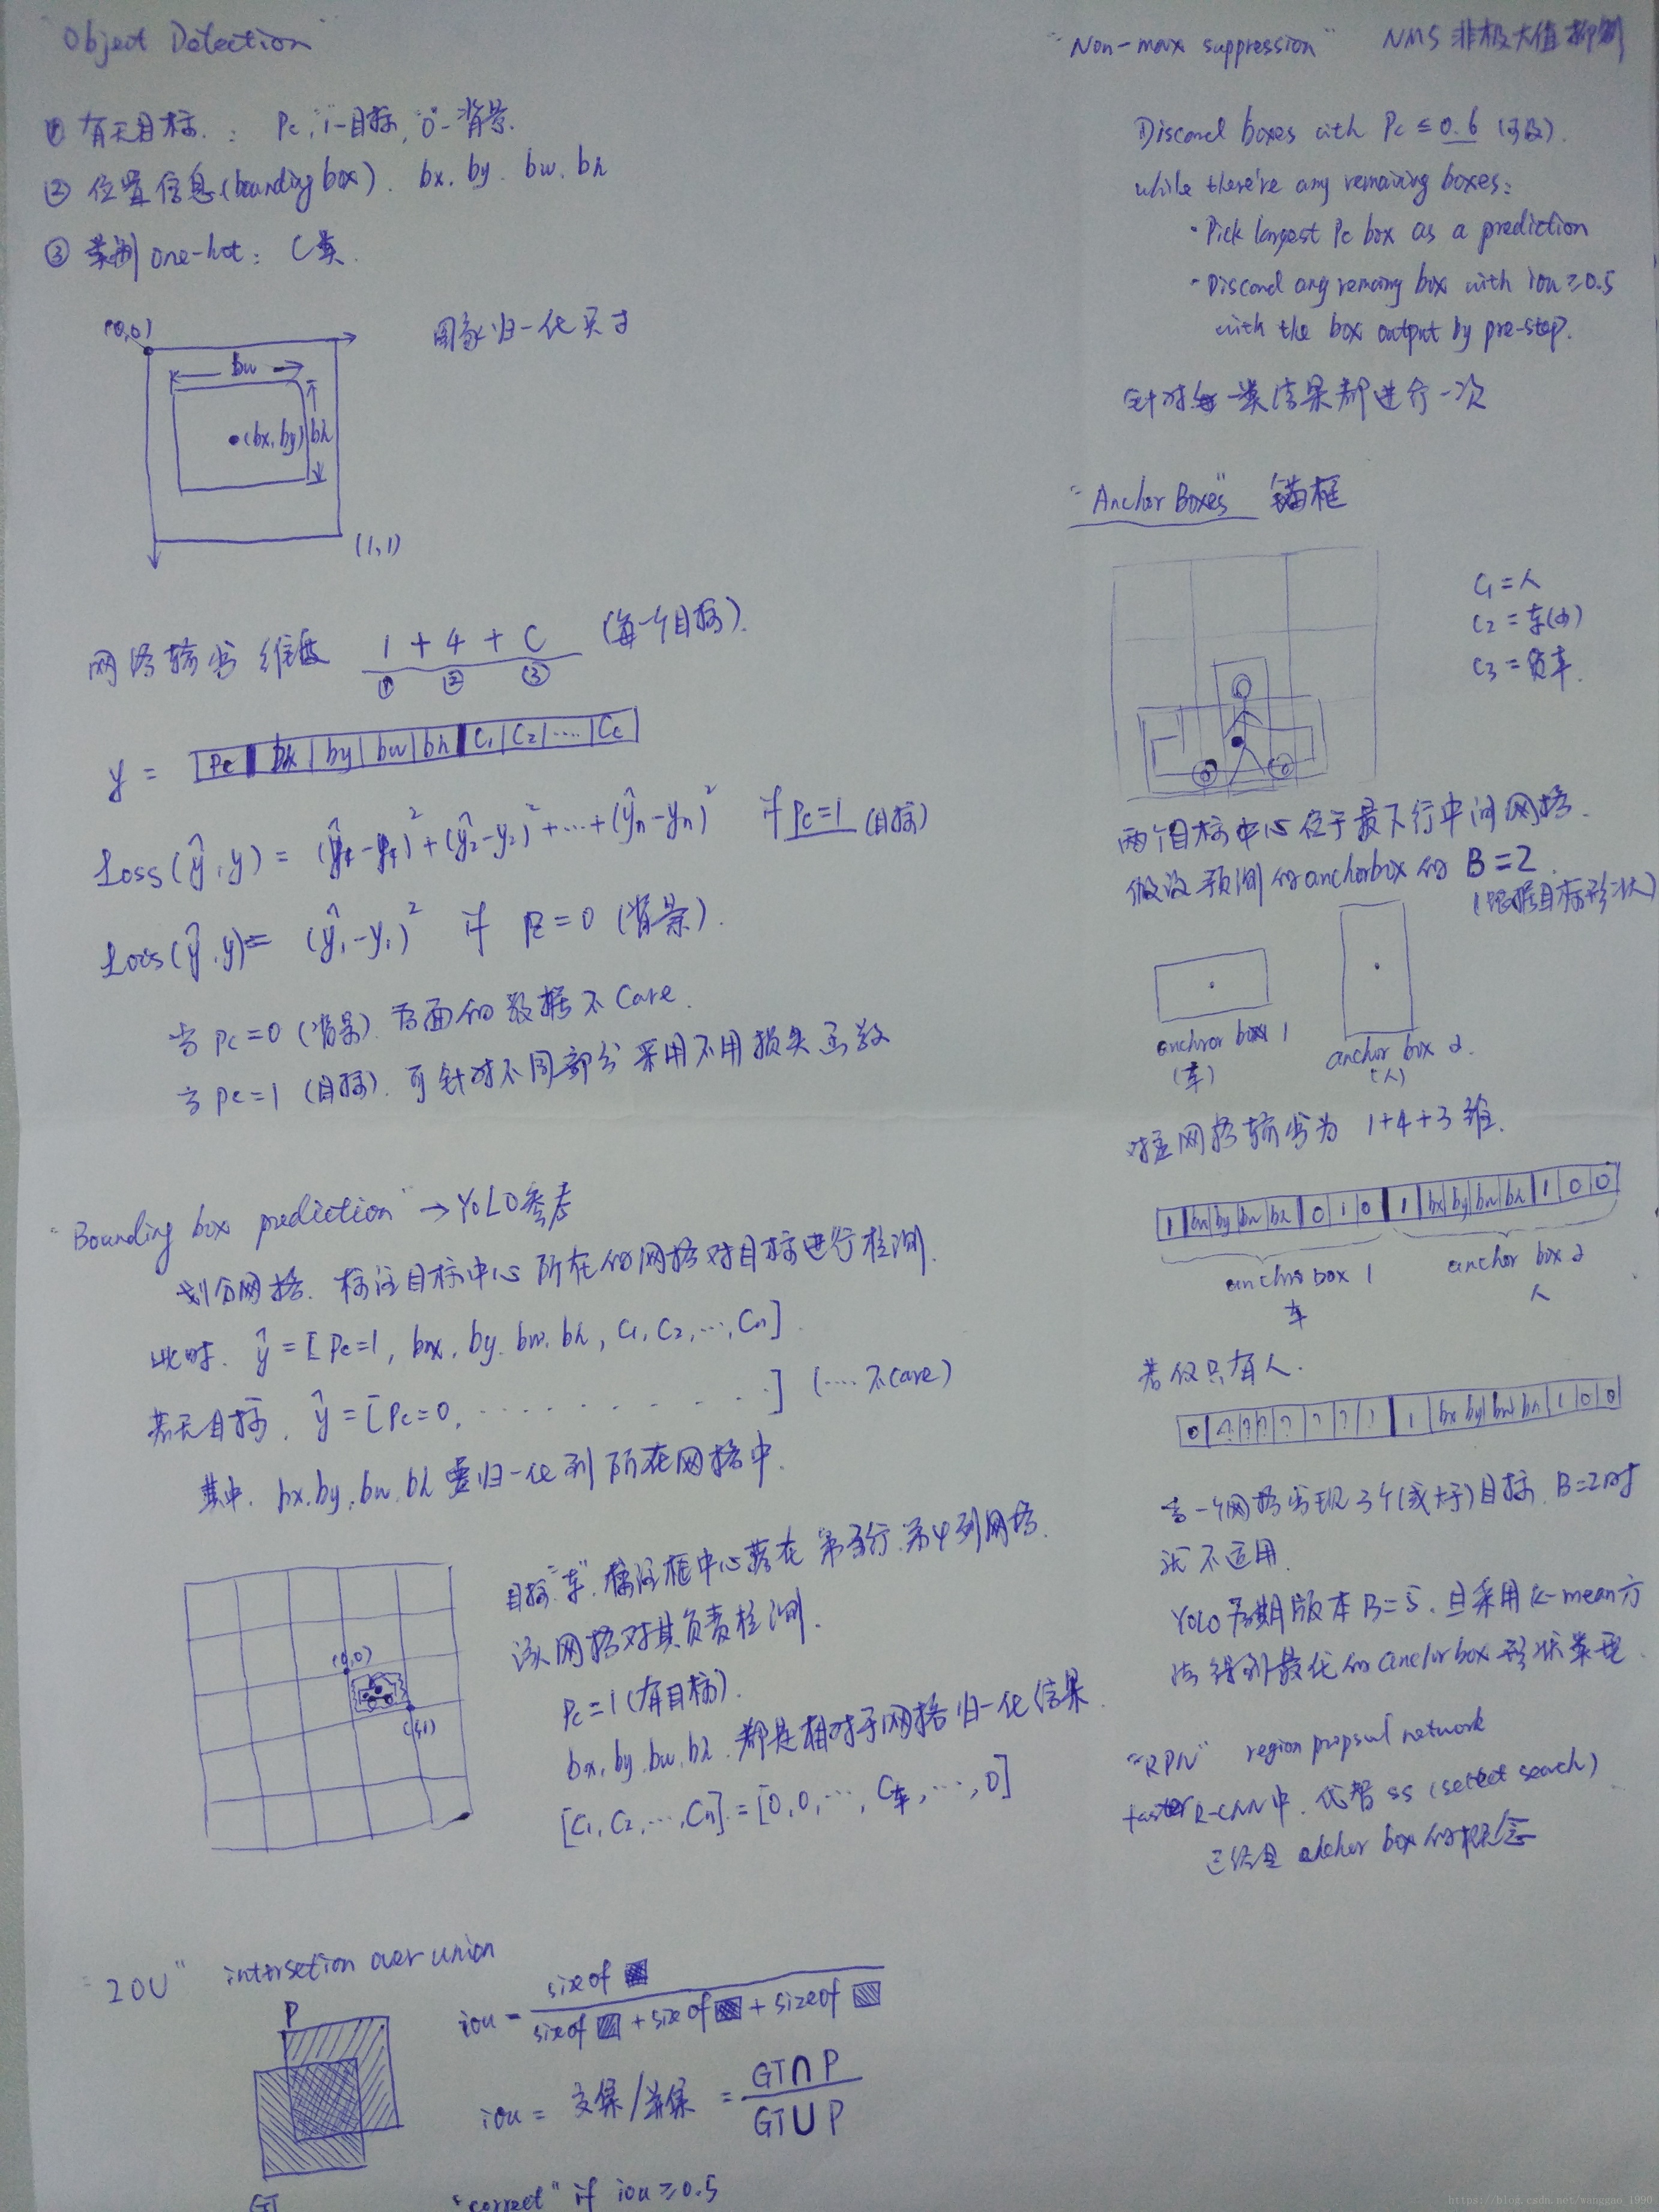 "Object Detection"
① 有无目标: Pc, "1"-目标, "0"-背景.
② 位置信息(bounding box). bx. by. bw. bh
③ 类别 one-hot: C类.
(0,0)
图象归一化尺寸
bw
(bx, by)
bh
(1,1)
网络输出维度 1 + 4 + C (每一个目标).
① ② ③
y = Pc bx by bw bh C1 C2 .... Cc
Loss(ŷ, y) = (ŷ1-y1)² + (ŷ2-y2)² + ... + (ŷn-yn)² if Pc=1 (目标)
Loss(ŷ, y) = (ŷ1-y1)² if Pc=0 (背景).
当 Pc=0 (背景). 后面的数据不care.
当 Pc=1 (目标). 可针对不同部分采用不用损失函数
"Bounding box prediction" → YOLO参考
划分网格. 标注目标中心所在的网格对目标进行检测.
此时. ŷ = [Pc=1, bx, by, bw, bh, C1, C2, ..., Cn]
若无目标, ŷ = [Pc=0, . . . . . . . . .] (.... 不care)
其中. bx, by, bw, bh 要归一化到所在网格中.
目标"车". 标注框中心落在第3行.第4列网格.
该网格对其负责检测.
(0,0)
(1,1)
Pc=1 (有目标).
bx, by, bw, bh. 都是相对于网格归一化结果.
[C1, C2, ..., Cn] = [0, 0, ..., C车, ..., 0]
"IOU" intersetion over union
P
GT
iou = size of / size of + size of + size of
iou = 交集/并集 = GT∩P / GT∪P
"correct" if iou ≥ 0.5
"Non-max suppression" NMS 非极大值抑制
Discard boxes with Pc ≤ 0.6
while there're any remaining boxes:
· Pick largest Pc box as a prediction
· Discard any remaing box with iou ≥ 0.5
with the box output by pre-step.
针对每一类结果都进行一次
"Anchor Boxes" 锚框
C1 = 人
C2 = 车
C3 = 货车.
两个目标中心位于最下行中间网格.
假设预测的anchorbox的 B=2.
(根据目标形状)
anchror box 1
(车)
anchor box 2.
(人)
对应网格输出为 1+4+3 维.
1 bx by bw bh 0 1 0 1 bx by bw bh 1 0 0
anchro box 1
车
anchor box 2
人
若仅只有人.
0 ? ? ? ? ? ? ? 1 bx by bw bh 1 0 0
当一个网格出现3个(或大于)目标. B=2时
就不适用.
YOLO后期版本 B=5. 且采用 k-mean方
法得到最优的anchor box形状实现.
"RPN" region propsul network
faster R-CNN中. 代替 ss (select search)
anchor box的概念
https://blog.csdn.net/wangguo_1990